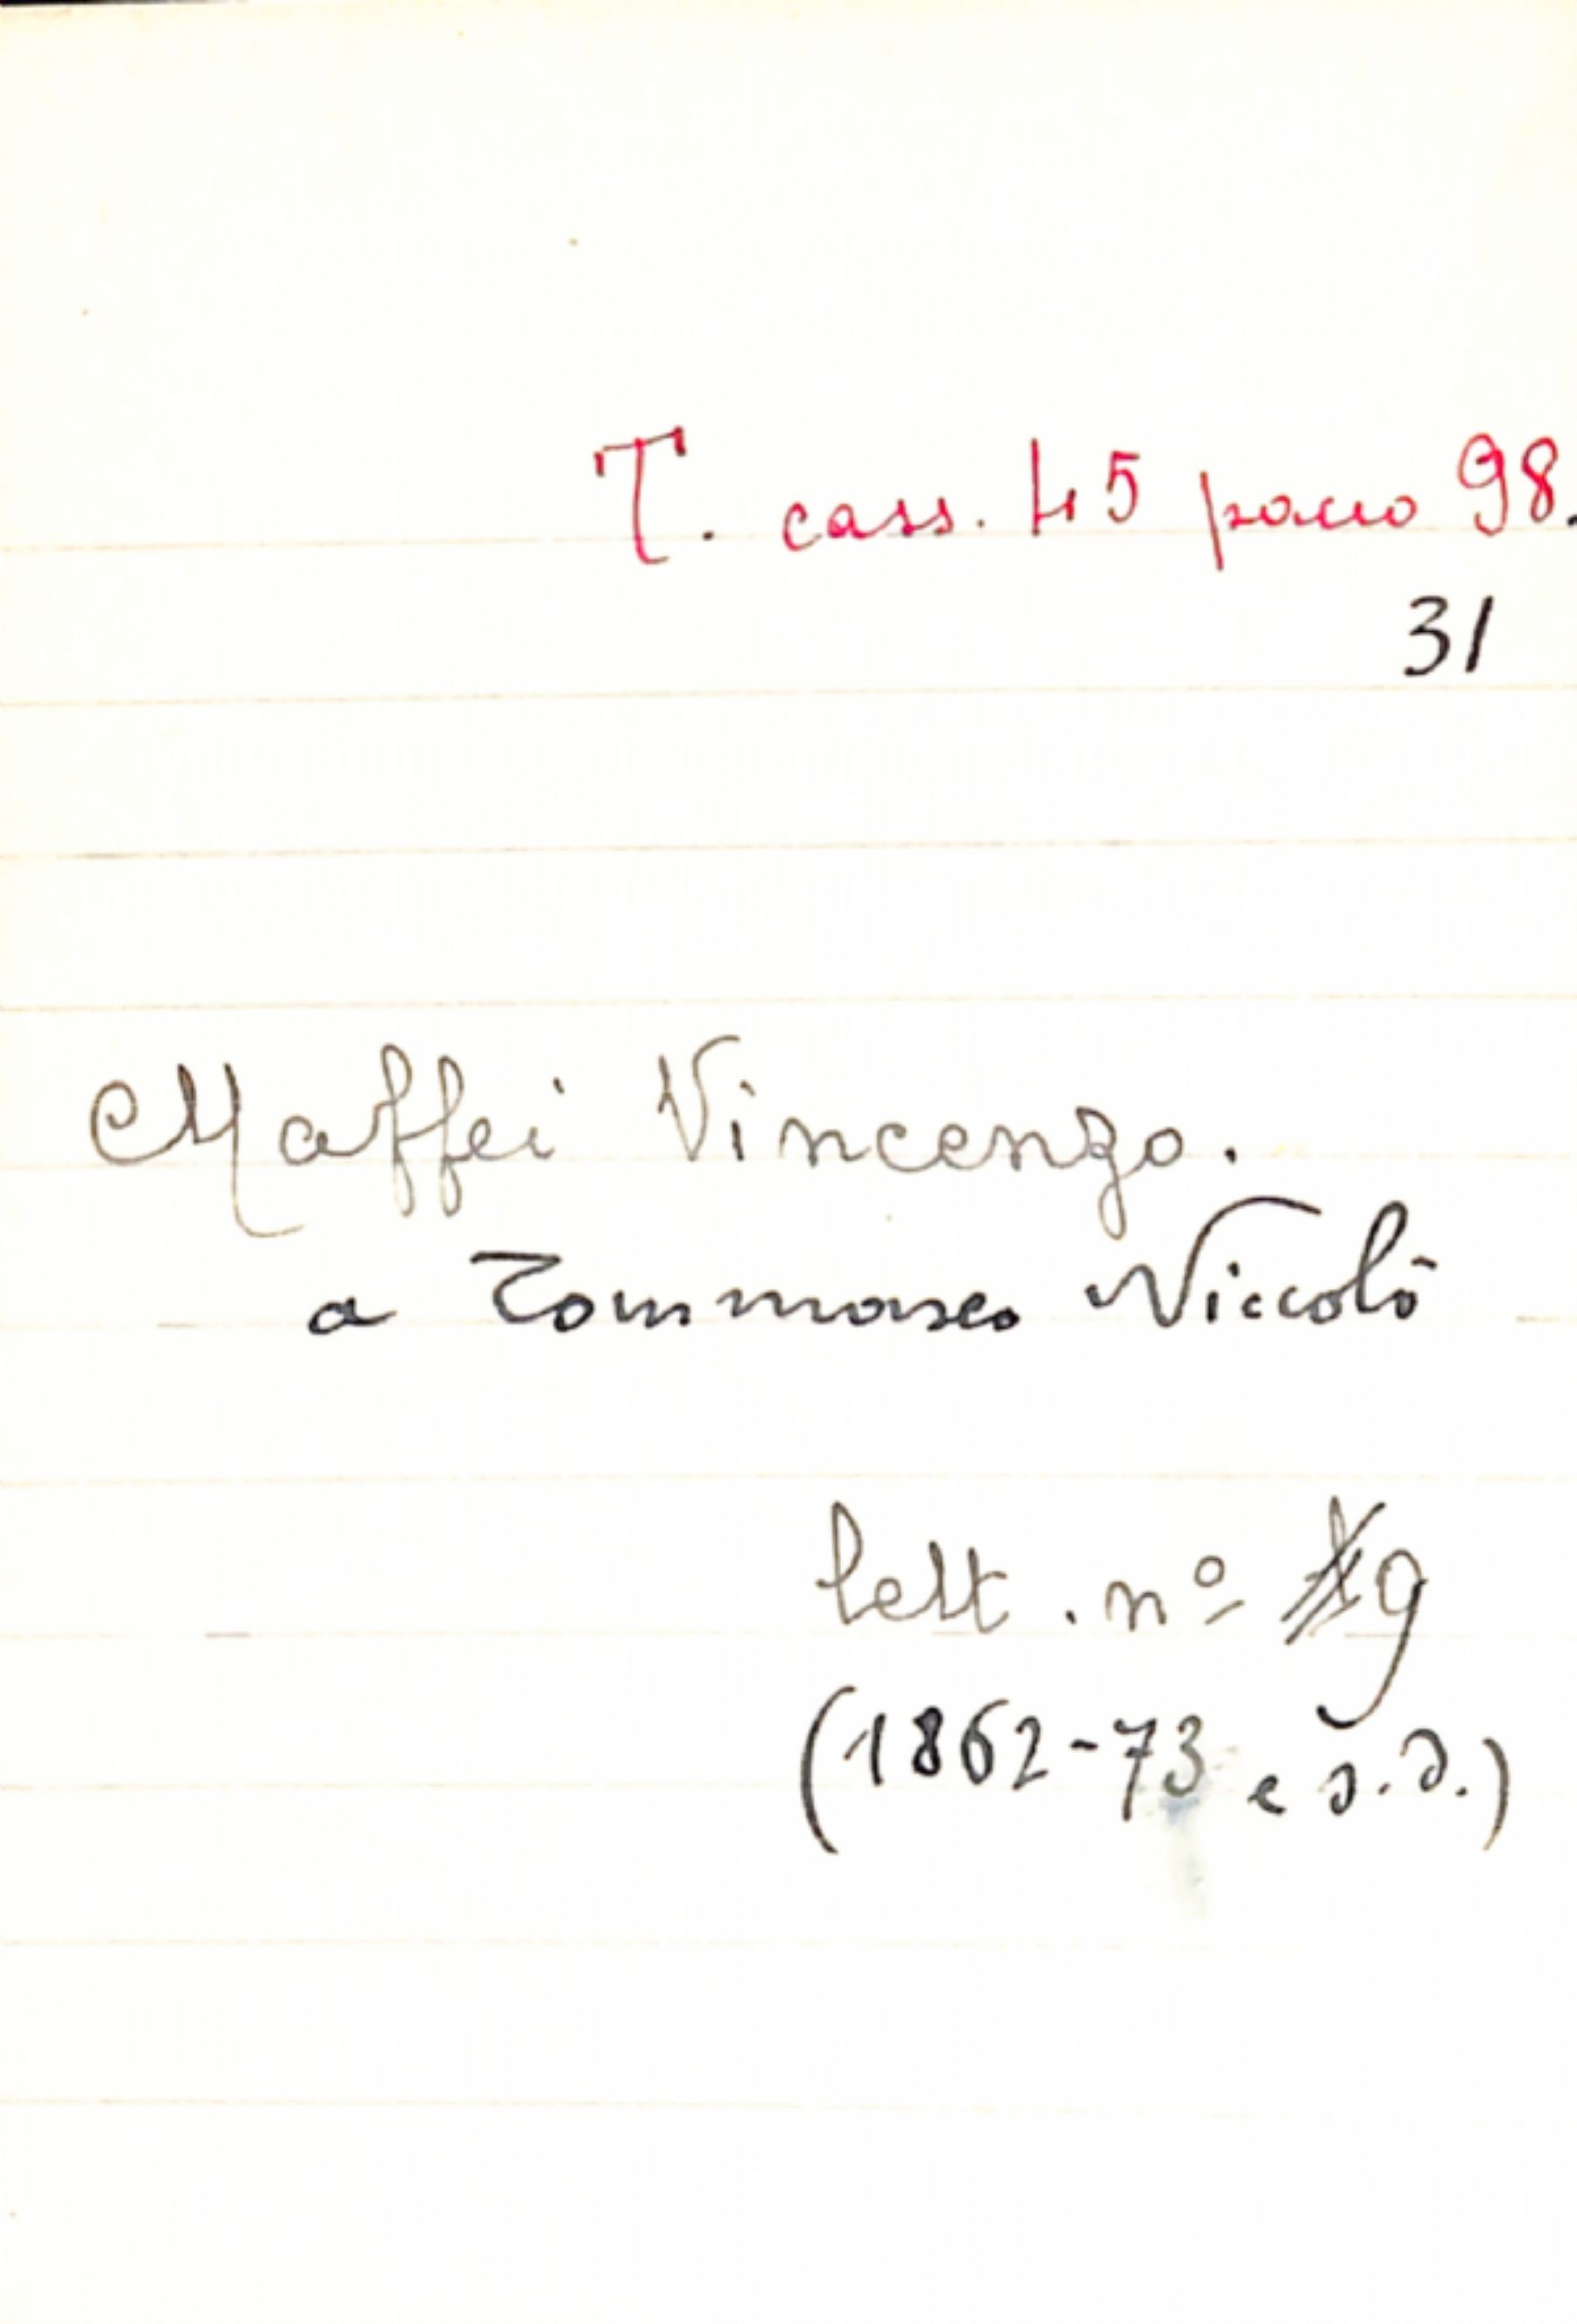 T. cass. 45 pacco 98.
31
Maffei Vincenzo.
a Tommaseo Niccolò
lett. nº 9
(1862-73 e s.d.)